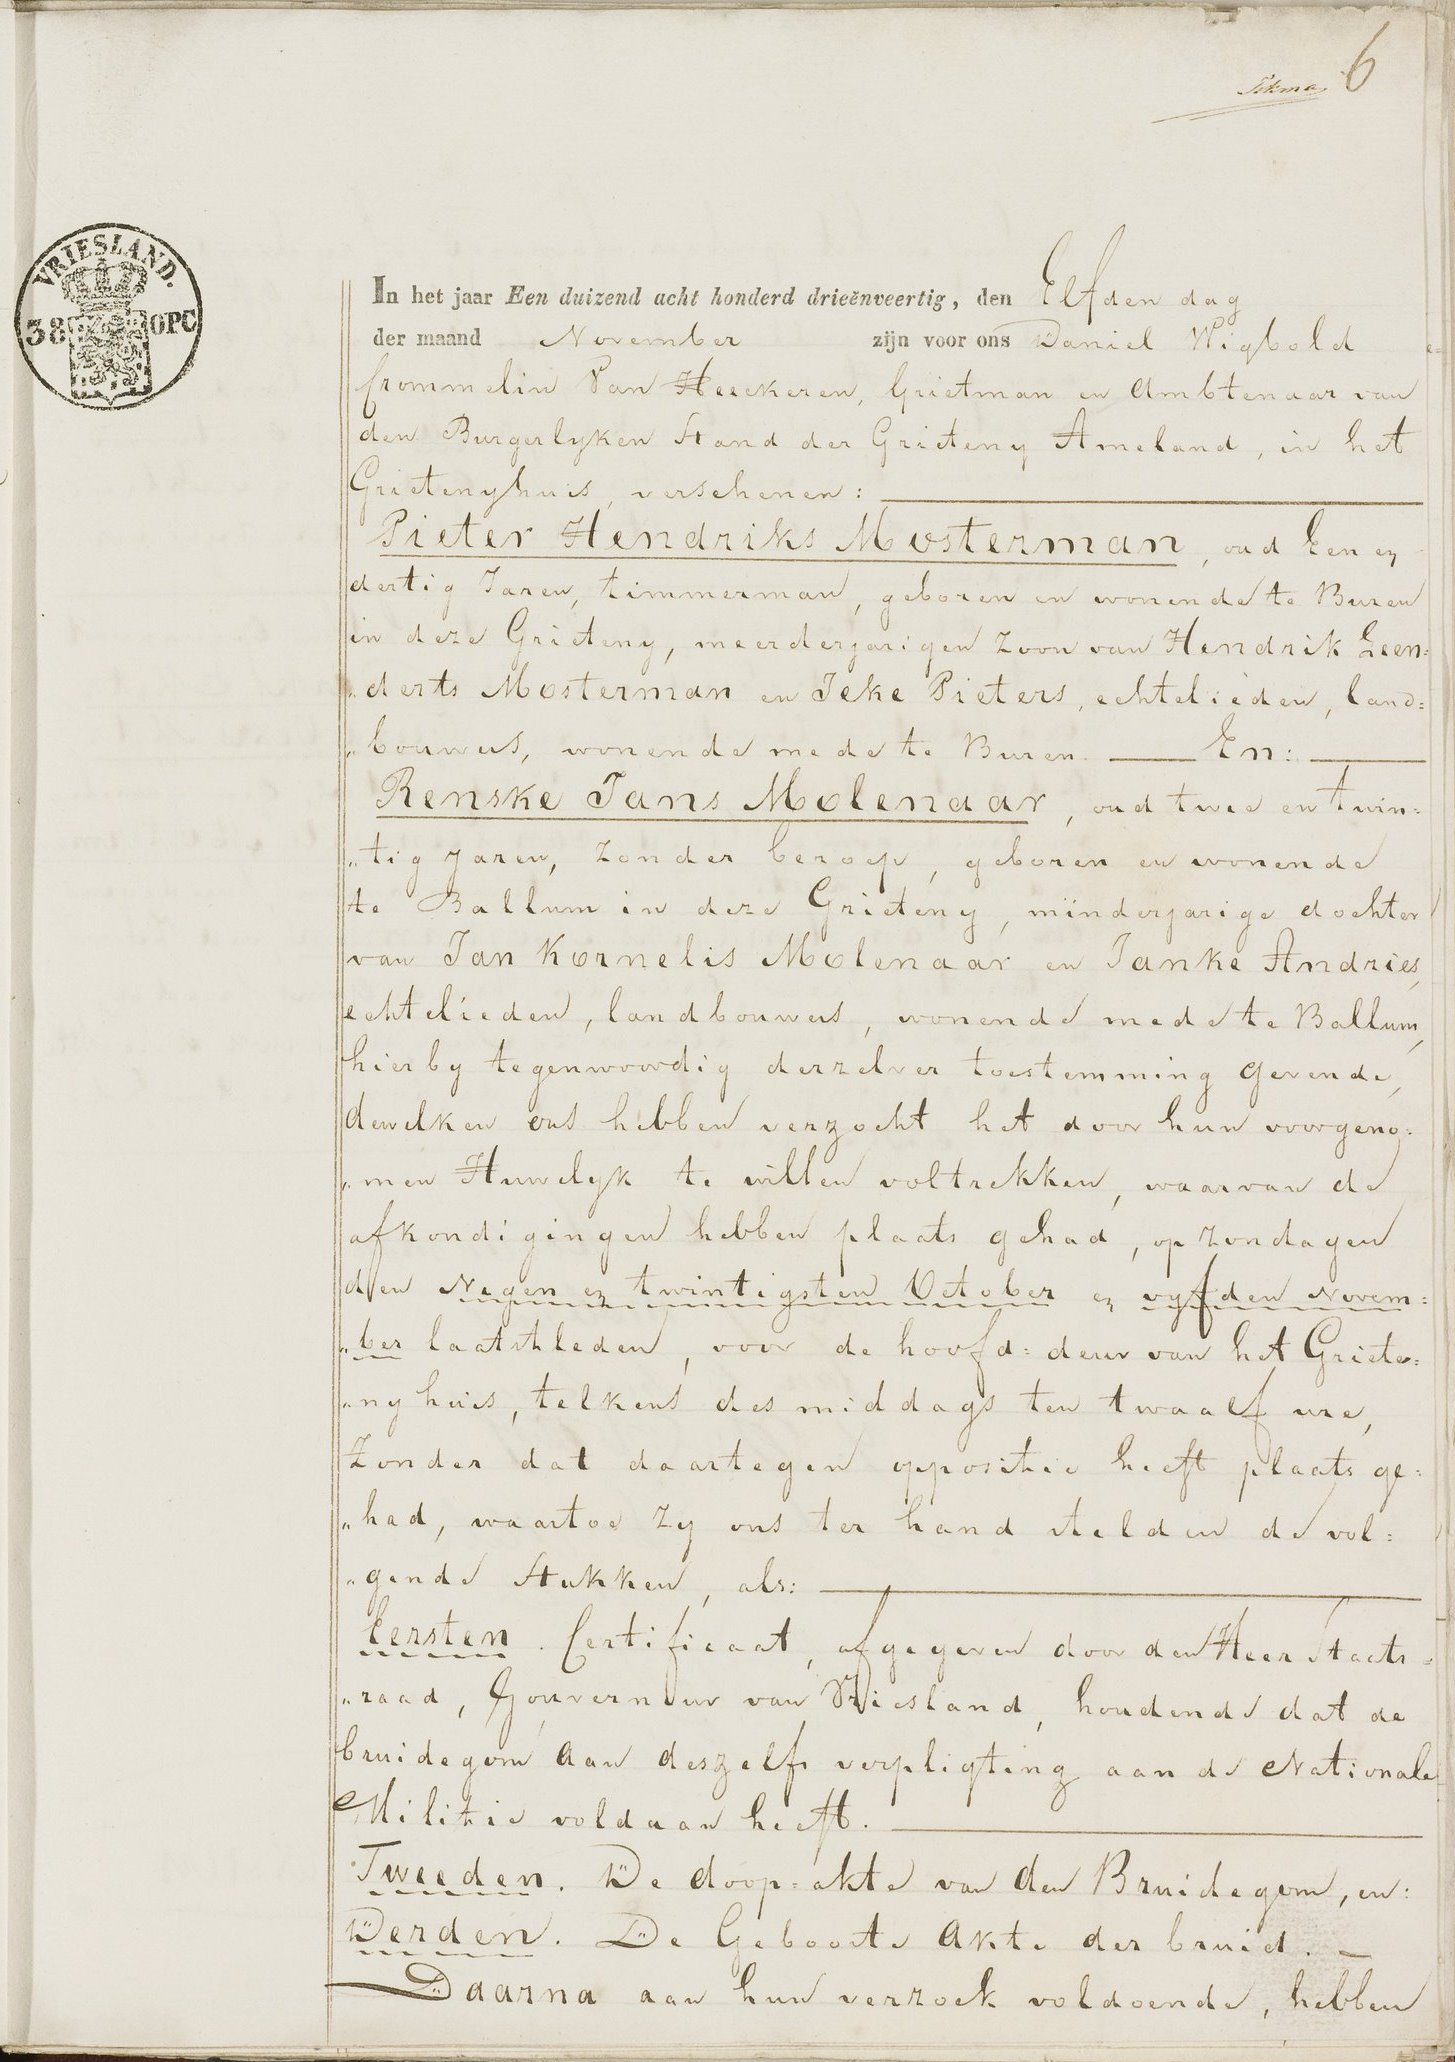 Sikma 6
VRIESLAND.
38 OPC
In het jaar Een duizend acht honderd drieënveertig, den Elfden dag
der maand November zijn voor ons Daniel Wigbold
Crommelin Van Heeckeren, Grietman en Ambtenaar van
den Burgerlyken Stand der Grieteny Ameland, in het
Grietenyhuis, verschenen:
Pieter Hendriks Mosterman, oud Een en
dertig Jaren, timmerman, geboren en wonende te Buren
in deze Grieteny, meerderjarigen Zoon van Hendrik Leen=
"derts Mosterman en Jeke Pieters, echtelieden, land=
"bouwers, wonende mede te Buren. — En: —
Renske Jans Molenaar, oud twee en twin=
"tig jaren, zonder beroep, geboren en wonende
te Ballum in deze Grieteny, minderjarige dochter
van Jan Kornelis Molenaar en Janke Andries,
echtelieden, landbouwers, wonende mede te Ballum,
hierby tegenwoordig derzelver toestemming gevende,
dewelken ons hebben verzocht het door hun voorgeno=
"men Huwelyk te willen voltrekken, waarvan de
afkondigingen hebben plaats gehad, op Zondagen
den Negen en twintigsten October en vyfden Novem=
"ber laatstleden, voor de hoofd=deur van het Griete=
"nyhuis, telkens des middags ten twaalf ure,
Zonder dat daartegen oppositie heeft plaats ge=
"had, waartoe Zy ons ter hand stelden de vol=
"gende Stukken, als:
Eersten. Certificaat, afgegeven door den Heer Staats=
"raad, Gouverneur van Vriesland, houdende dat de
bruidegom aan deszelfs verpligting aan de Nationale
Militie voldaan heeft.
Tweeden. De doop=akte van den Bruidegom, en:
Derden. De Geboorte Akte der bruid. —
Daarna aan hun verzoek voldoende, hebben